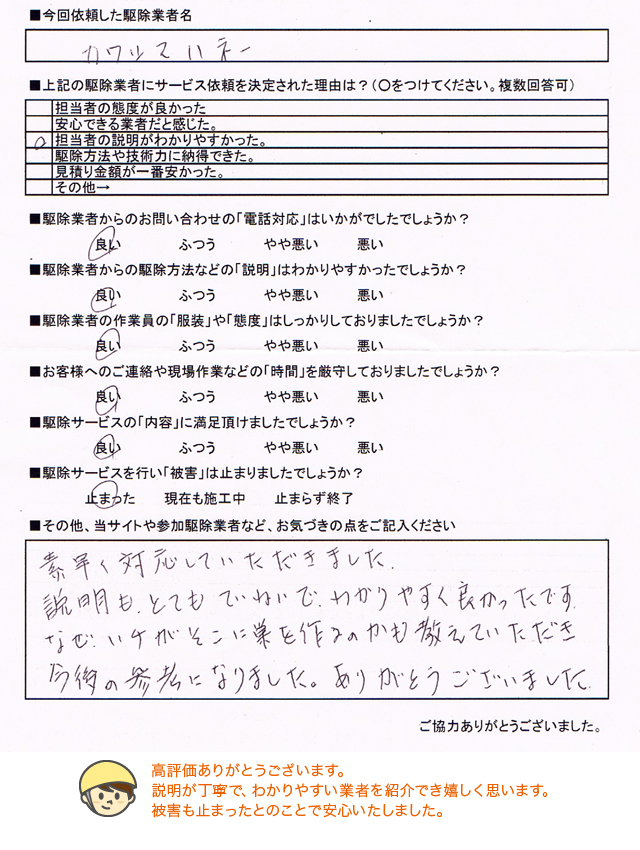 ■今回依頼した駆除業者名
カワッスハネー
■上記の駆除業者にサービス依頼を決定された理由は？（〇をつけてください。複数回答可）
担当者の態度が良かった
安心できる業者だと感じた。
○ 担当者の説明がわかりやすかった。
駆除方法や技術力に納得できた。
見積り金額が一番安かった。
その他→
■駆除業者からのお問い合わせの「電話対応」はいかがでしたでしょうか？
良い ふつう やや悪い 悪い
■駆除業者からの駆除方法などの「説明」はわかりやすかったでしょうか？
良い ふつう やや悪い 悪い
■駆除業者の作業員の「服装」や「態度」はしっかりしておりましたでしょうか？
良い ふつう やや悪い 悪い
■お客様へのご連絡や現場作業などの「時間」を厳守しておりましたでしょうか？
良い ふつう やや悪い 悪い
■駆除サービスの「内容」に満足頂けましたでしょうか？
良い ふつう やや悪い 悪い
■駆除サービスを行い「被害」は止まりましたでしょうか？
止まった 現在も施工中 止まらず終了
■その他、当サイトや参加駆除業者など、お気づきの点をご記入ください
素早く対応していただきました。
説明も、とてもていねいで、わかりやすく良かったです。
なぜ、ハチがそこに巣を作るのかも教えていただき
今後の参考になりました。ありがとうございました。
ご協力ありがとうございました。
高評価ありがとうございます。
説明が丁寧で、わかりやすい業者を紹介でき嬉しく思います。
被害も止まったとのことで安心いたしました。